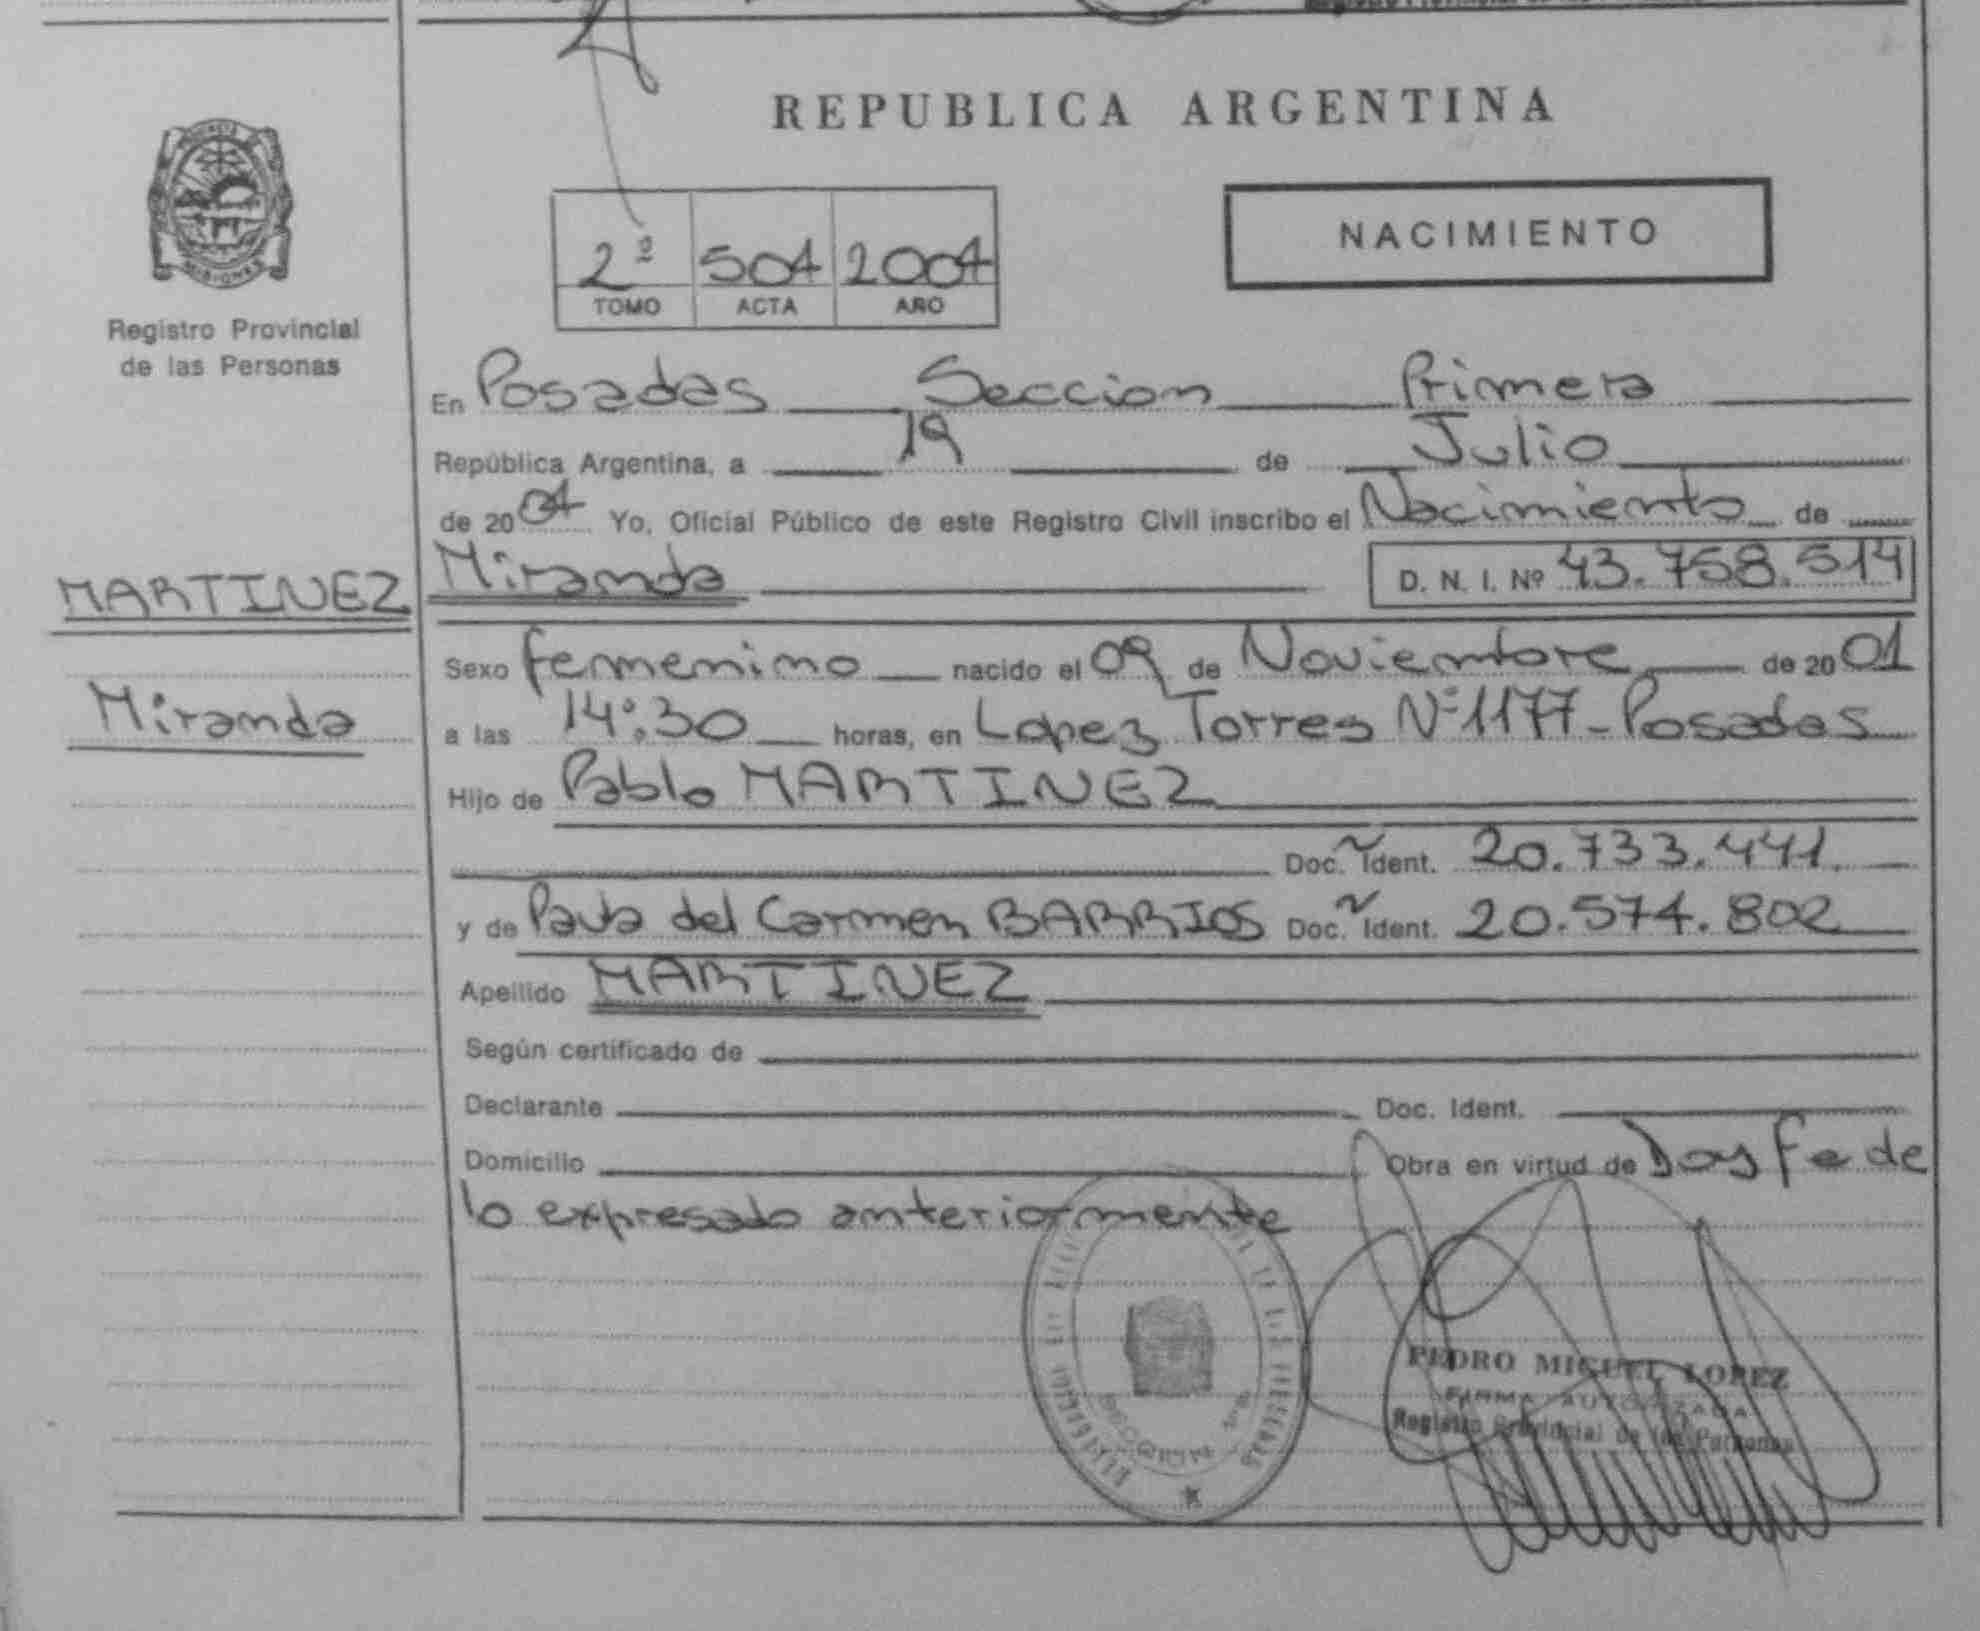 REPUBLICA ARGENTINA
MISIONES
Registro Provincial
de las Personas
NACIMIENTO
2º 504 2004
TOMO ACTA AÑO
En Posadas Seccion Primera
República Argentina, a 19 de Julio
de 2004 Yo, Oficial Público de este Registro Civil inscribo el Nacimiento de
MARTINEZ
Miranda D. N. I. Nº 43.758.514
Sexo femenino nacido el 09 de Noviembre de 2001
Miranda
a las 14:30 horas, en Lopez Torres Nº 1177 - Posadas
Hijo de Pablo MARTINEZ
Doc. Ident. 20.733.441.
y de del Carmen BARRIOS Doc. Ident. 20.574.802
Apellido MARTINEZ
Según certificado de
Declarante Doc. Ident.
Domicilio Obra en virtud de Doy fe de
lo expresado anteriormente
PEDRO MIGUEL LOPEZ
FIRMA AUTORIZADA
Registro Provincial de las Personas